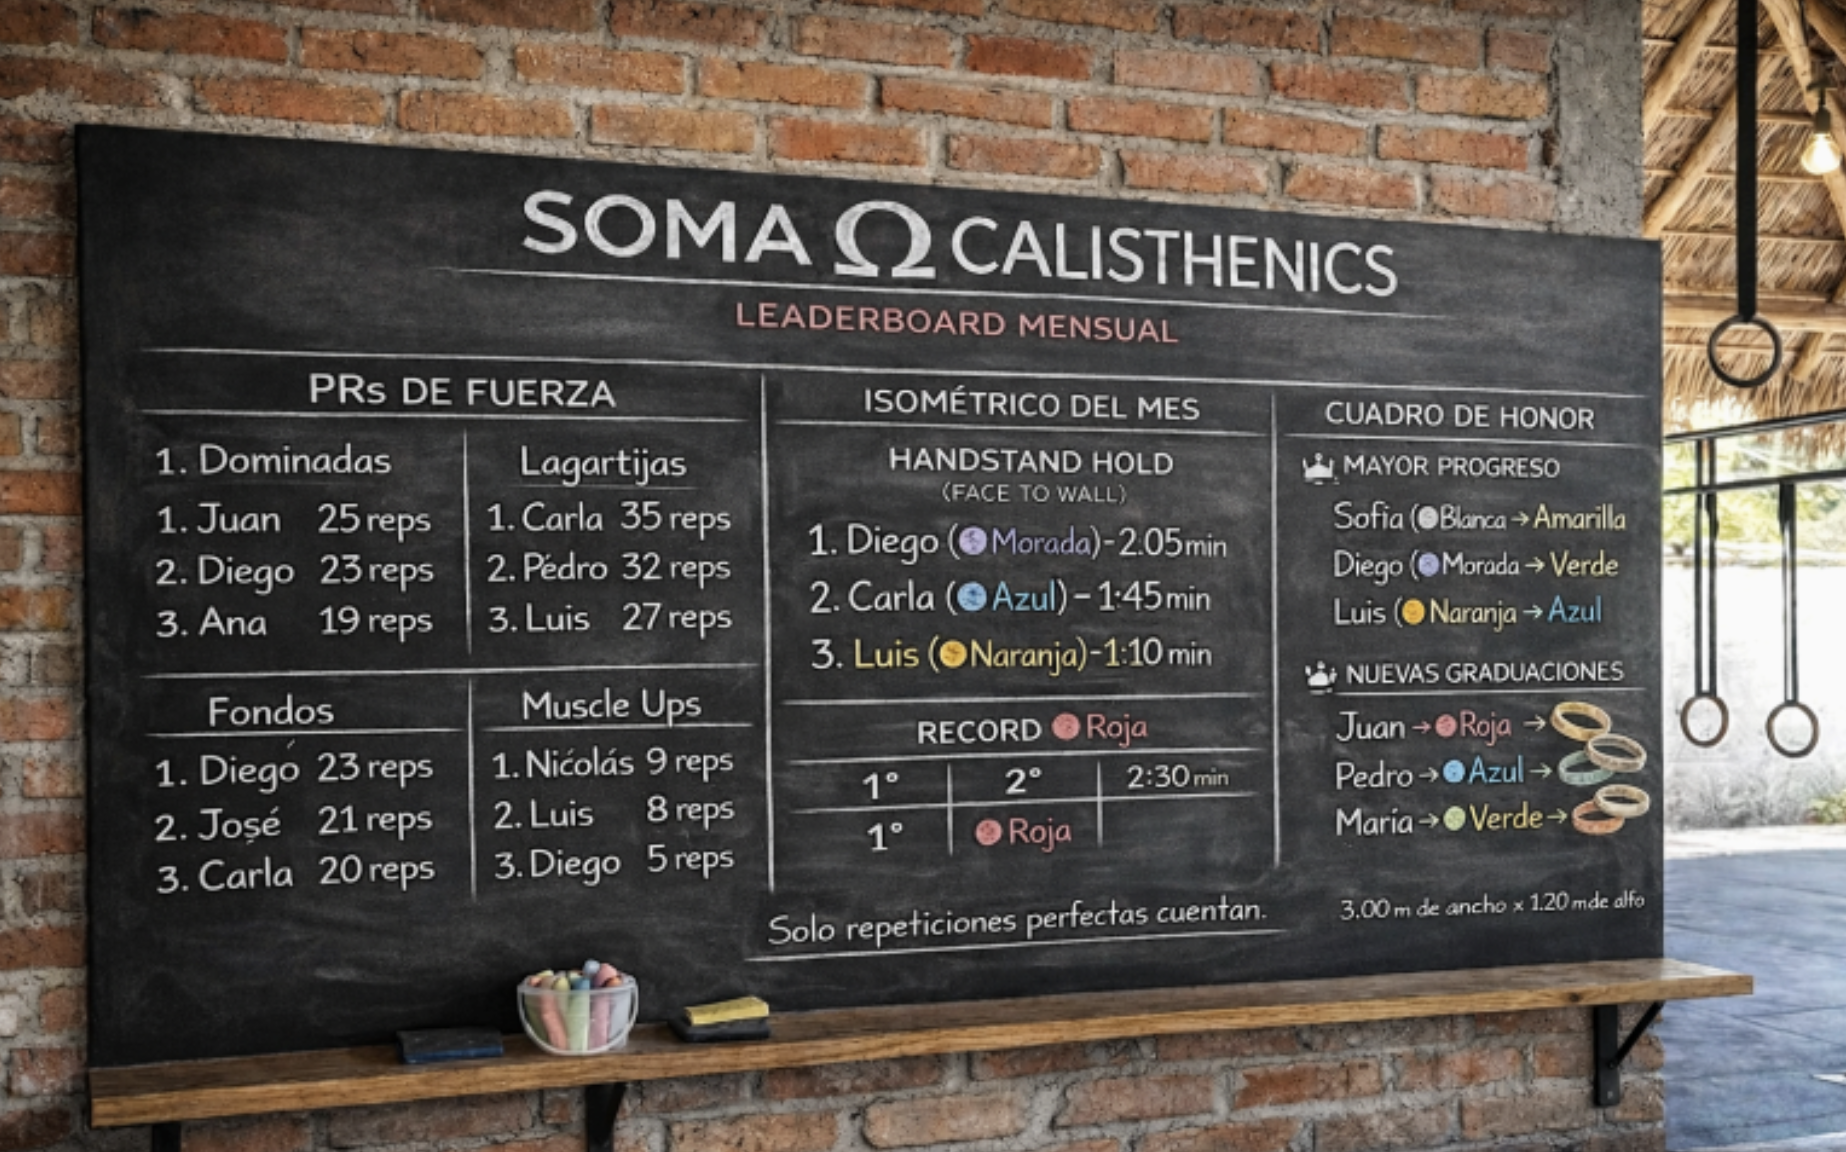 SOMA Ω CALISTHENICS
LEADERBOARD MENSUAL
PRs DE FUERZA
1. Dominadas
1. Juan 25 reps
2. Diego 23 reps
3. Ana 19 reps
Lagartijas
1. Carla 35 reps
2. Pédro 32 reps
3. Luis 27 reps
Fondos
1. Diego 23 reps
2. José 21 reps
3. Carla 20 reps
Muscle Ups
1. Nićolás 9 reps
2. Luis 8 reps
3. Diego 5 reps
ISOMÉTRICO DEL MES
HANDSTAND HOLD
(FACE TO WALL)
1. Diego (Morada)-2.05min
2. Carla (Azul) – 1:45min
3. Luis (Naranja)-1:10 min
RECORD Roja
1° 2° 2:30 min
1° Roja
Solo repeticiones perfectas cuentan.
CUADRO DE HONOR
MAYOR PROGRESO
Sofía (Blanca → Amarilla
Diego (Morada → Verde
Luis (Naranja → Azul
NUEVAS GRADUACIONES
Juan → Roja →
Pedro → Azul →
María → Verde →
3.00 m de ancho x 1.20 mde alfo